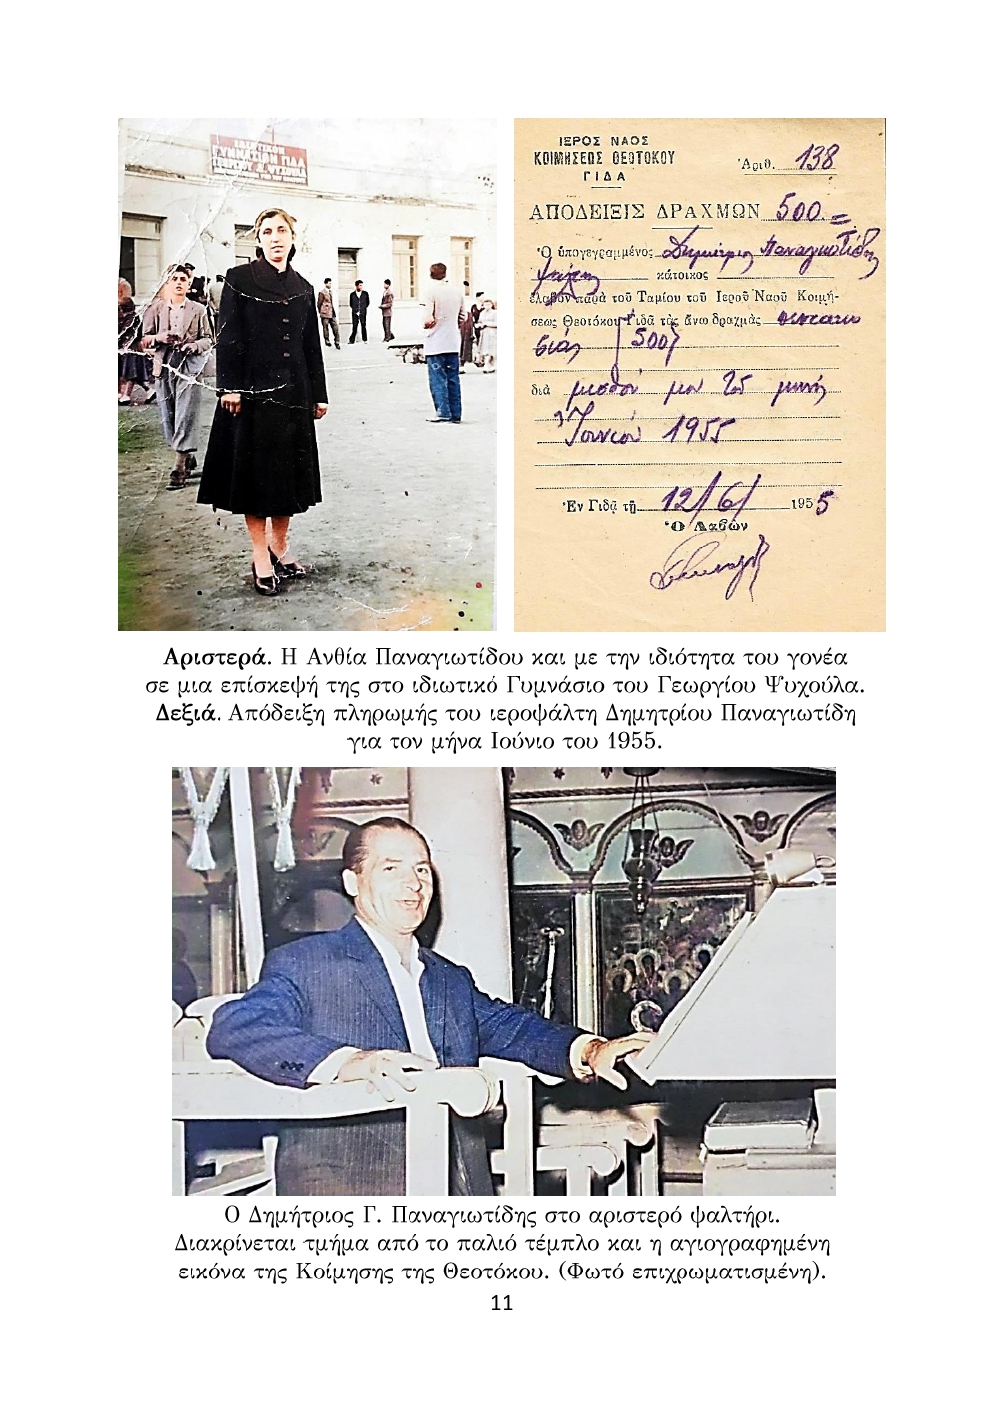 ΓΥΜΝΑΣΙΟΝ ΓΙΔΑ
ΙΕΡΟΣ ΝΑΟΣ
ΚΟΙΜΗΣΕΩΣ ΘΕΟΤΟΚΟΥ
ΓΙΔΑ
Ἀριθ. 138
ΑΠΟΔΕΙΞΙΣ ΔΡΑΧΜΩΝ 500.=
Ὁ ὑπογεγραμμένος Δημήτριος Παναγιωτίδης
ψάλτης κάτοικος
ἔλαβον παρὰ τοῦ Ταμίου τοῦ Ἱεροῦ Ναοῦ Κοιμή-
σεως Θεοτόκου Γιδᾶ τὰς ἄνω δραχμὰς πεντακο
σίας 500
διὰ μισθόν μου τοῦ μηνός
Ἰουνίου 1955
Ἐν Γιδᾷ τῇ 12/6/ 1955
Ὁ Λαβὼν
Αριστερά. Η Ανθία Παναγιωτίδου και με την ιδιότητα του γονέα
σε μια επίσκεψή της στο ιδιωτικό Γυμνάσιο του Γεωργίου Ψυχούλα.
Δεξιά. Απόδειξη πληρωμής του ιεροψάλτη Δημητρίου Παναγιωτίδη
για τον μήνα Ιούνιο του 1955.
Ο Δημήτριος Γ. Παναγιωτίδης στο αριστερό ψαλτήρι.
Διακρίνεται τμήμα από το παλιό τέμπλο και η αγιογραφημένη
εικόνα της Κοίμησης της Θεοτόκου. (Φωτό επιχρωματισμένη).
11